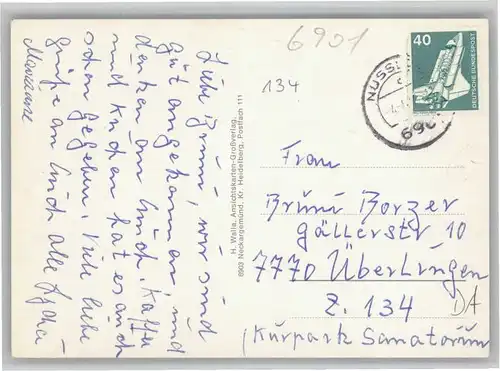 6901
134
NUSSL
690
40
DEUTSCHE BUNDESPOST
Liebe Bruni, wir sind
gut angekommen, und
denken an Euch. Kaffee
und Kuchen hat es auch
schon gegeben. Viele liebe
Grüße an Euch alle
Marianne
H. Wella, Ansichtskarten-Großverlag,
6903 Neckargemünd, Kr. Heidelberg, Postfach 111
Frau
Bruni Borzer
Gällerstr 10
7770 Überlingen
Z. 134
DA
(Kurpark Sanatorium